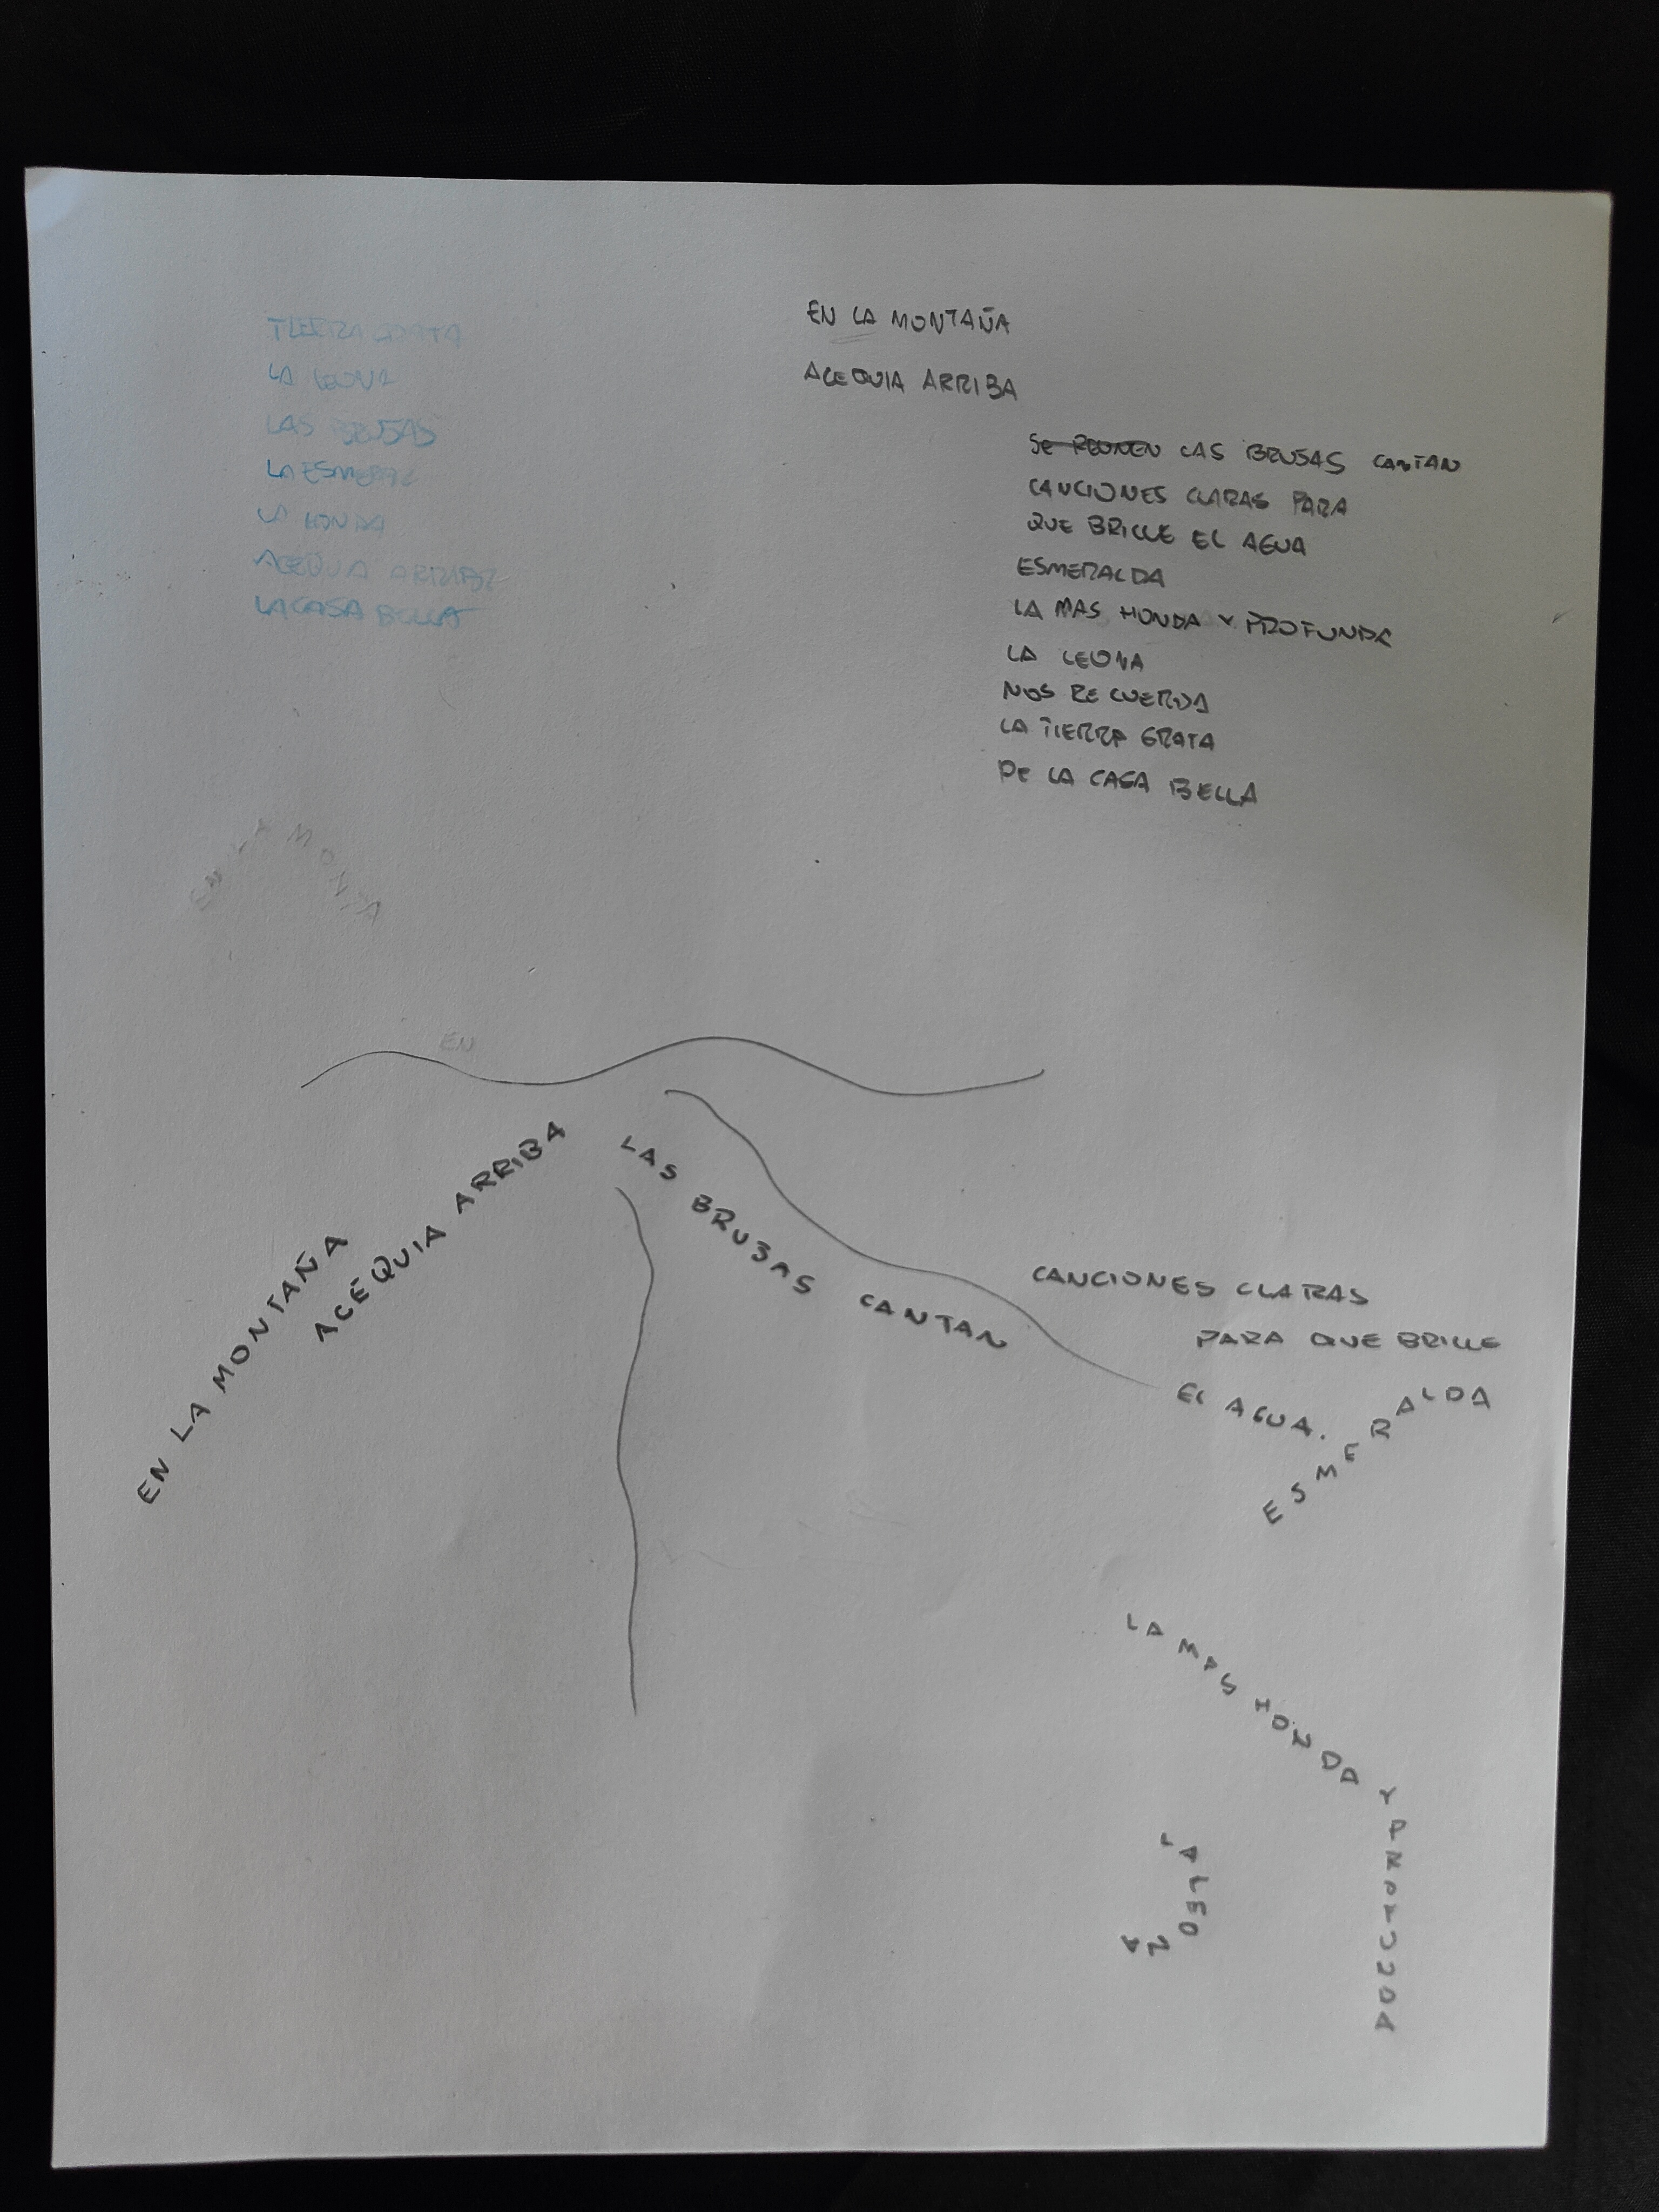 TIERRA GRATA
LA LEONA
LAS BRUJAS
LA ESMERAL
LA HONDA
ACEQUIA ARRIBA
LA CASA BELLA
EN LA MONTAÑA
ACEQUIA ARRIBA
SE REUNEN LAS BRUJAS CANTAN
CANCIONES CLARAS PARA
QUE BRILLE EL AGUA
ESMERALDA
LA MAS HONDA Y PROFUNDA
LA LEONA
NOS RECUERDA
LA TIERRA GRATA
DE LA CASA BELLA
EN LA MONTA
EN
EN LA MONTAÑA
ACEQUIA ARRIBA
LAS BRUJAS CANTAN
CANCIONES CLARAS
PARA QUE BRILLE
EL AGUA.
ESMERALDA
LA MAS HONDA Y PROFUNDA
LA LEONA